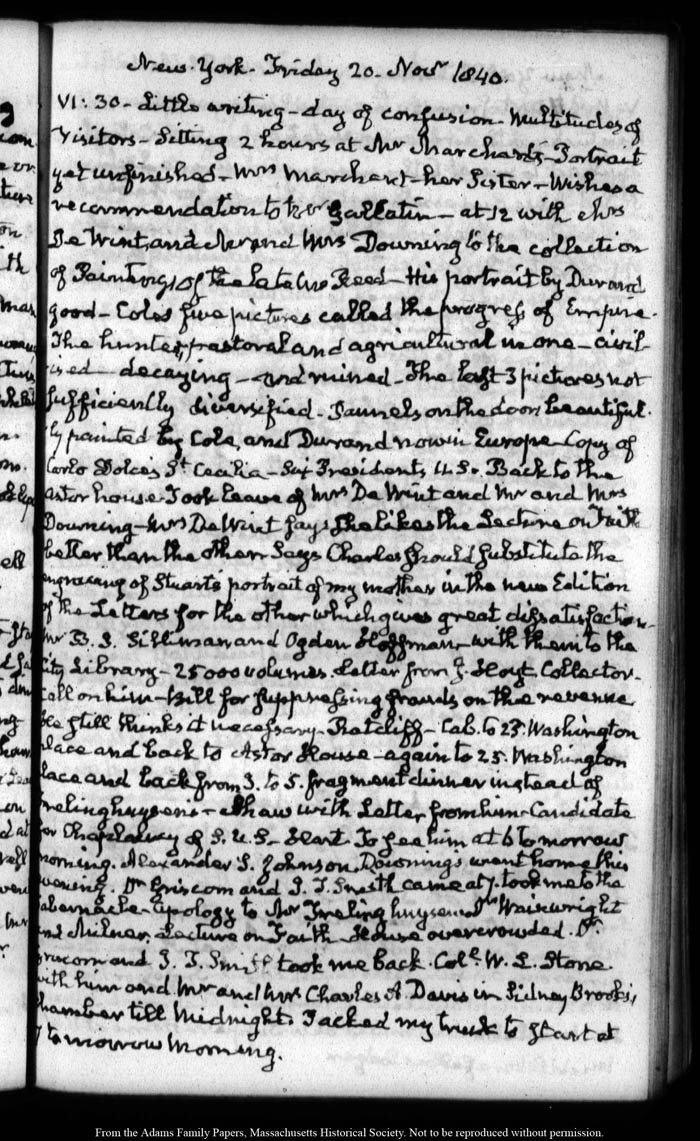 New-York. Friday 20. Novr 1840.
VI: 30. Little writing - day of confusion. Multitudes of
Visitors - Sitting 2 hours at Mr Marchant's - Portrait
yet unfinished - Mrs Marchant - her Sister - Wishes a
recommendation to Mr Gallatin - at 12 with Mrs
De Wint, and Mr and Mrs Downing to the collection
of Paintings of the late Mr Reed - His portrait by Durand
good - Coles five pictures called the progress of Empire.
The hunter, pastoral and agricultural in one - civil-
ised - decaying - and ruined - The last 3 pictures not
sufficiently diversified - Pannels on the doors beautiful-
ly painted by Cole, and Durand now in Europe - Copy of
Carlo Dolce's St Cecilia - Six Presidents U.S. Back to the
Astor house. Took leave of Mrs De Wint and Mr and Mrs
Downing - Mrs De Wint says she likes the Lecture on Faith
better than the other. Says Charles should substitute the
engraving of Stuarts portrait of my mother in the new Edition
of the Letters for the other which gives great dissatisfaction.
Mr B. Silliman and Ogden Hoffman - with them to the
City Library - 25000 volumes. Letter from J. Hoyt, Collector.
call on him - Bill for suppressing frauds on the revenue
He still thinks it necessary - Ratcliff - Cab. to 23. Washington
place and back to Astor House - again to 25. Washington
place and back from 3. to 5. fragment dinner instead of
Frelinghuysen's - with Letter from him - Candidate
for Chaplaincy of S. U.S. - Hart. To see him at 6 tomorrow
morning. Alexander S. Johnson. Downings went home this
evening. Dr Griscom and J. T. Smith came at 7. took me to the
Tabernacle - apology to Mr Frelinghuysen Dr Wainwright
and Milnor. Lecture on Faith - House overcrowded. Dr
Griscom and J. T. Smith took me back. Col. W. L. Stone.
with him and Mr and Mrs Charles A. Davis in Sidney Brooks's
chamber till Midnight. Packed my trunk to start at
7 tomorrow morning.
From the Adams Family Papers, Massachusetts Historical Society. Not to be reproduced without permission.